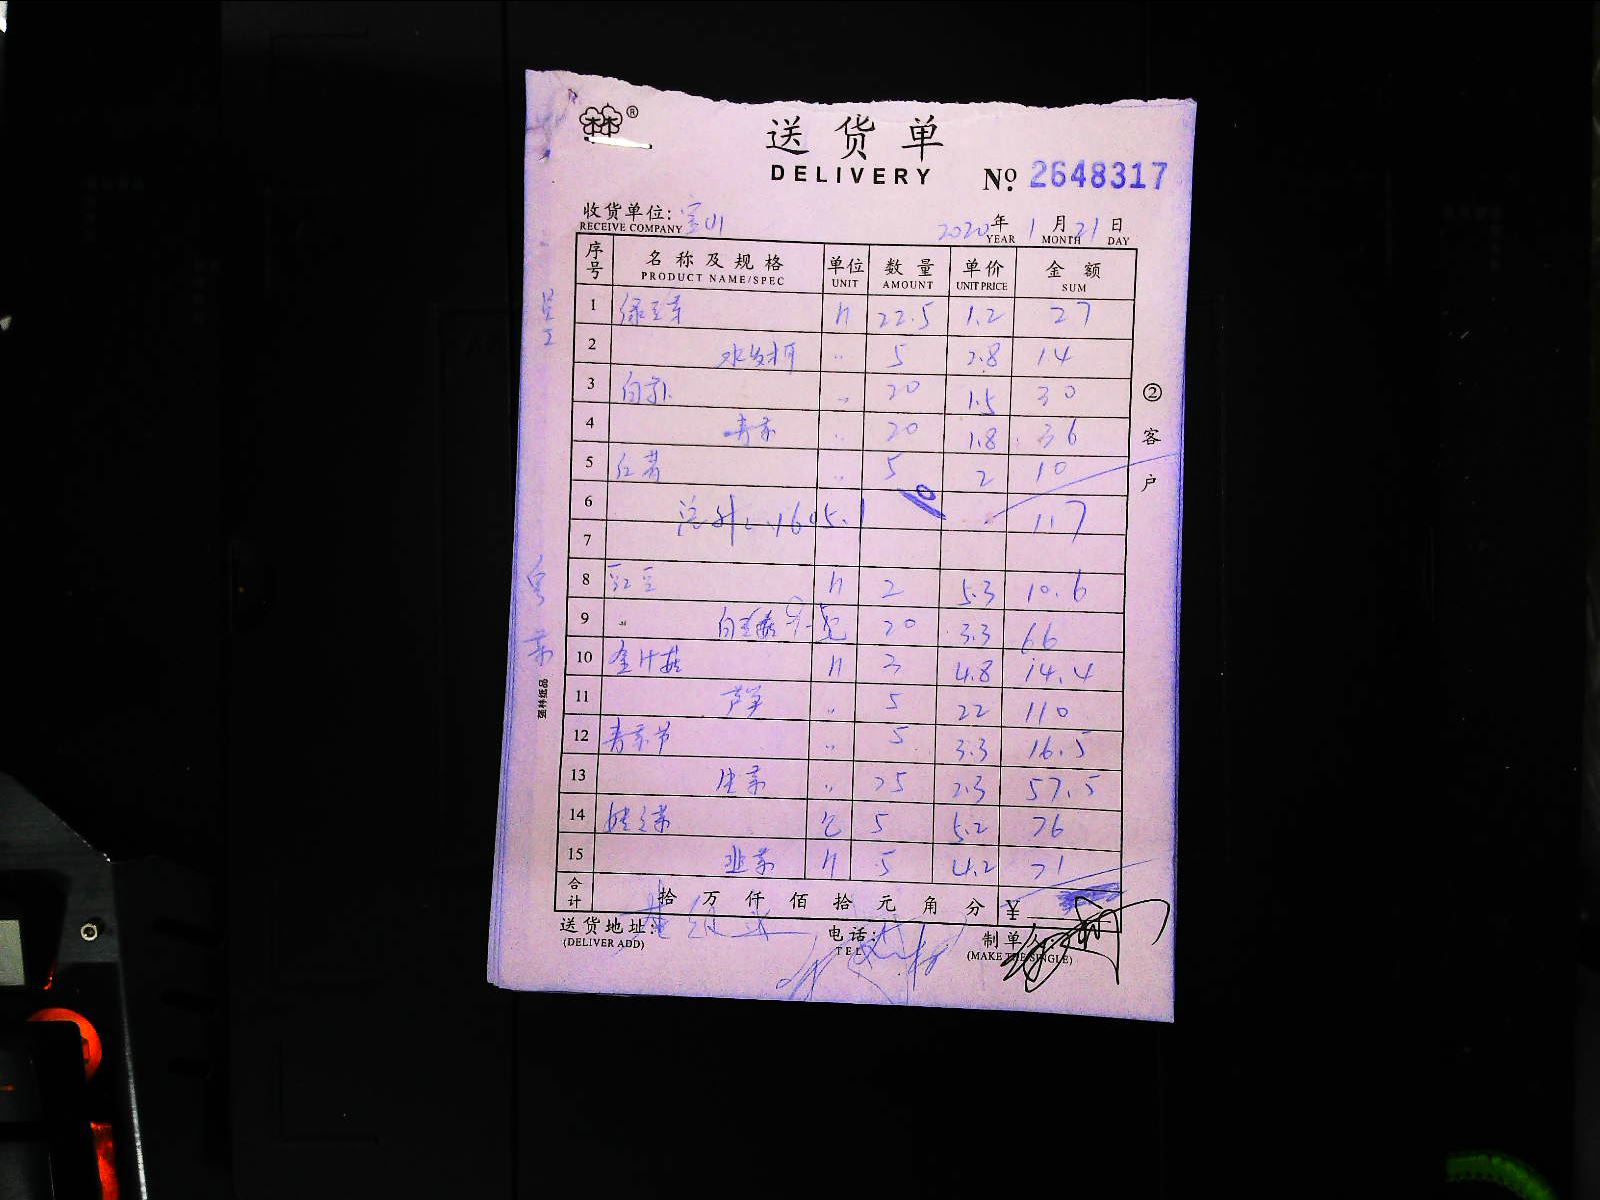 林®
送货单
DELIVERY
№ 2648317
收货单位: 宝山 2020年 1月 21日
RECEIVE COMPANY YEAR MONTH DAY
序号 名称及规格 单位 数量 单价 金额
PRODUCT NAME/SPEC UNIT AMOUNT UNIT PRICE SUM
1 绿豆芽 斤 22.5 1.2 27
2 水发木耳 〃 5 2.8 14
3 白菜 〃 20 1.5 30
4 青菜 〃 20 1.8 36
5 红薯 〃 5 2 10
6 1605.1 10 117
7
8 豇豆 斤 2 5.3 10.6
9 〃 20 3.3 66
10 金针菇 斤 3 4.8 14.4
11 芦笋 〃 5 22 110
12 青菜 〃 5 3.3 16.5
13 生菜 〃 25 2.3 57.5
14 5 5.2 26
15 韭菜 斤 5 4.2 21
合计 拾 万 仟 佰 拾 元 角 分 ¥
送货地址: 电话: 制单人:
(DELIVER ADD) TEL (MAKE THE SINGLE)
②客户
员工
强林纸品